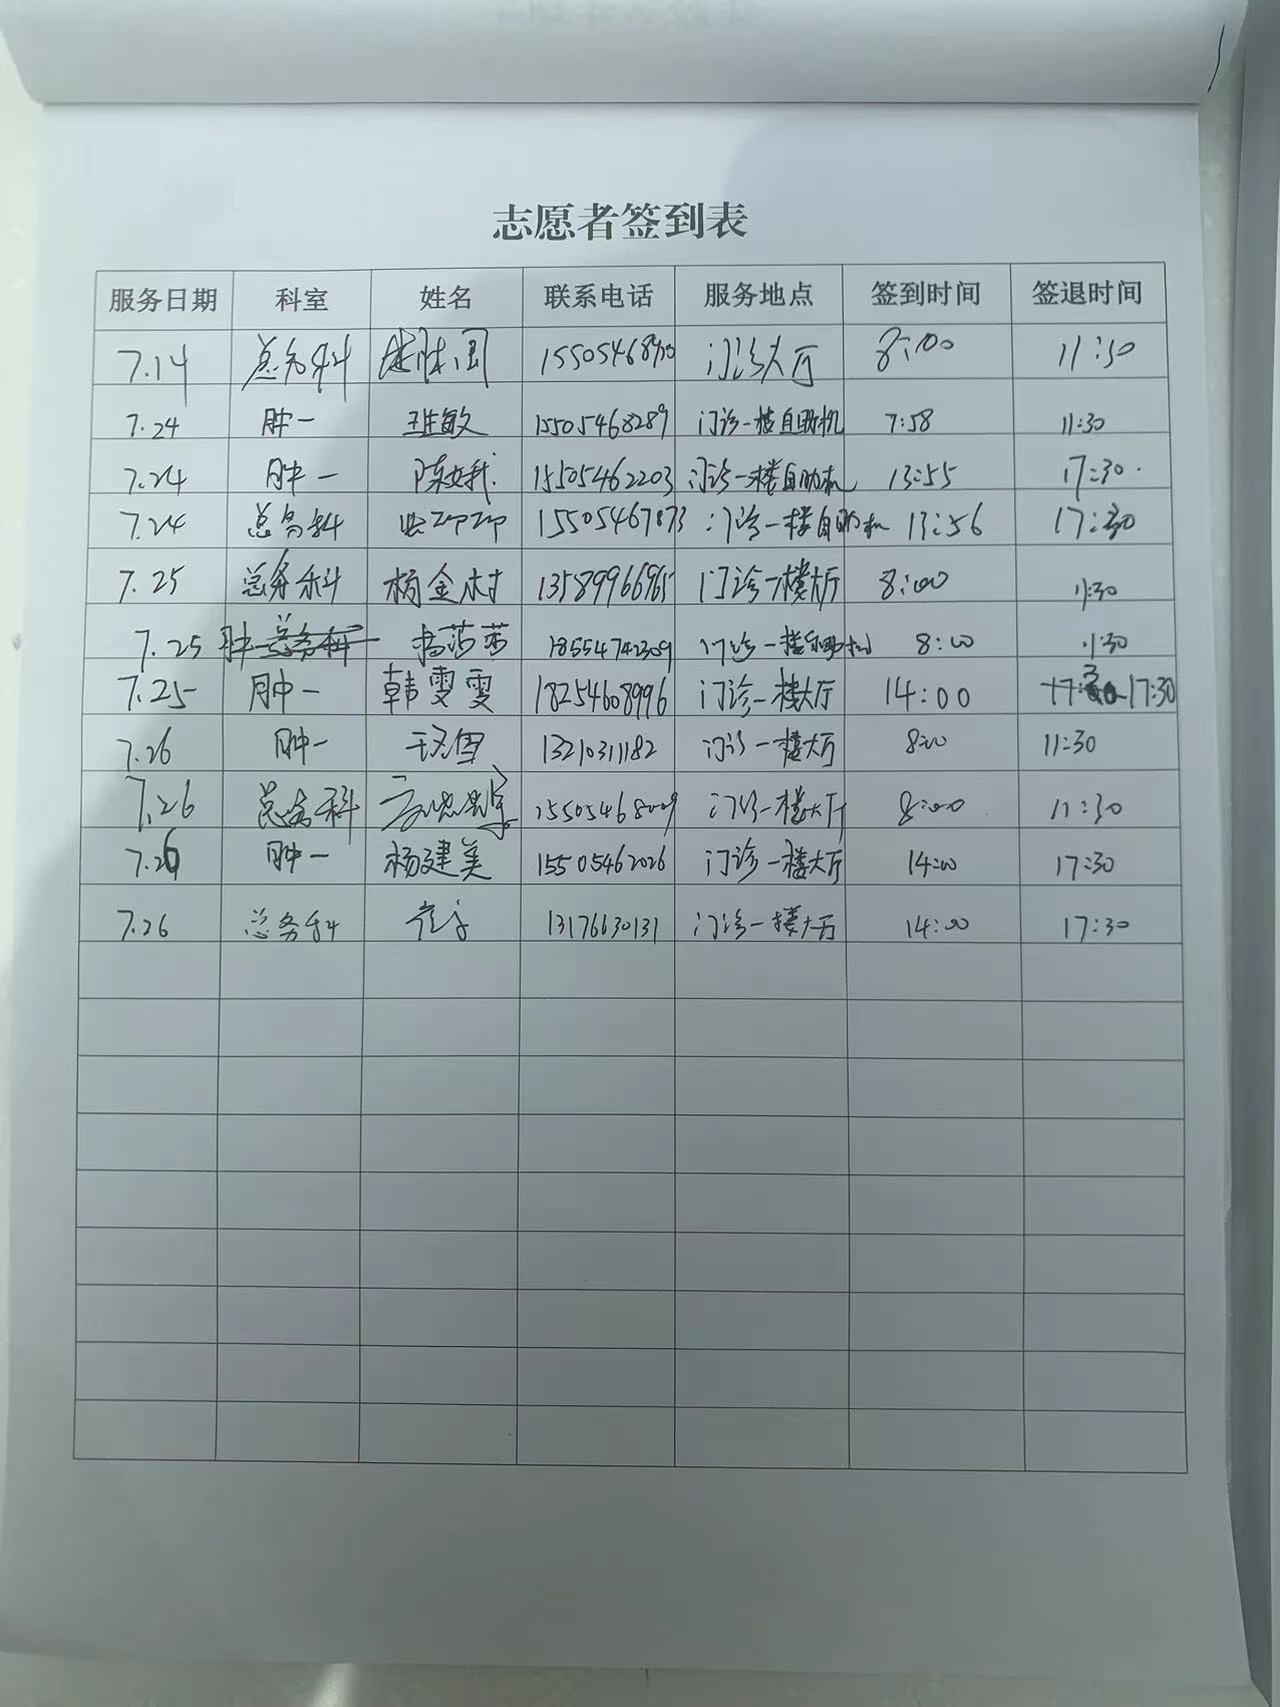 志愿者签到表
服务日期 科室 姓名 联系电话 服务地点 签到时间 签退时间
7.14 总务科 门诊大厅 8:00 11:30
7.24 肿一 15505468289 门诊一楼自助机 7:58 11:30
7.24 肿一 15505462203 门诊一楼自助机 13:55 17:30
7.24 总务科 15505467873 门诊一楼自助机 13:56 17:30
7.25 总务科 杨金村 13589966965 门诊一楼大厅 8:00 11:30
7.25 肿一 总务科 18554742309 门诊一楼自助机 8:00 11:30
7.25 肿一 韩雯雯 18254608996 门诊一楼大厅 14:00 17:30
7.26 肿一 13210311182 门诊一楼大厅 8:00 11:30
7.26 总务科 门诊一楼大厅 8:00 11:30
7.26 肿一 杨建美 15505462026 门诊一楼大厅 14:00 17:30
7.26 总务科 13176630131 门诊一楼大厅 14:00 17:30